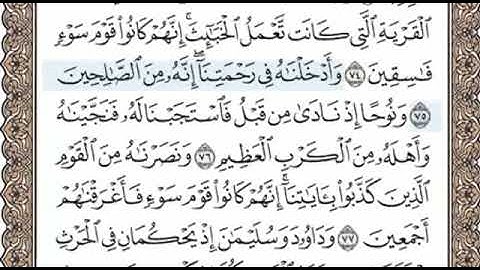 ٱلۡقَرۡيَةِ ٱلَّتِي كَانَت تَّعۡمَلُ ٱلۡخَبَٰٓئِثَۚ إِنَّهُمۡ كَانُواْ قَوۡمَ سَوۡءٖ
فَٰسِقِينَ ٧٤ وَأَدۡخَلۡنَٰهُ فِي رَحۡمَتِنَآۖ إِنَّهُۥ مِنَ ٱلصَّٰلِحِينَ
٧٥ وَنُوحًا إِذۡ نَادَىٰ مِن قَبۡلُ فَٱسۡتَجَبۡنَا لَهُۥ فَنَجَّيۡنَٰهُ
وَأَهۡلَهُۥ مِنَ ٱلۡكَرۡبِ ٱلۡعَظِيمِ ٧٦ وَنَصَرۡنَٰهُ مِنَ ٱلۡقَوۡمِ
ٱلَّذِينَ كَذَّبُواْ بِـَٔايَٰتِنَآۚ إِنَّهُمۡ كَانُواْ قَوۡمَ سَوۡءٖ فَأَغۡرَقۡنَٰهُمۡ
أَجۡمَعِينَ ٧٧ وَدَاوُۥدَ وَسُلَيۡمَٰنَ إِذۡ يَحۡكُمَانِ فِي ٱلۡحَرۡثِ